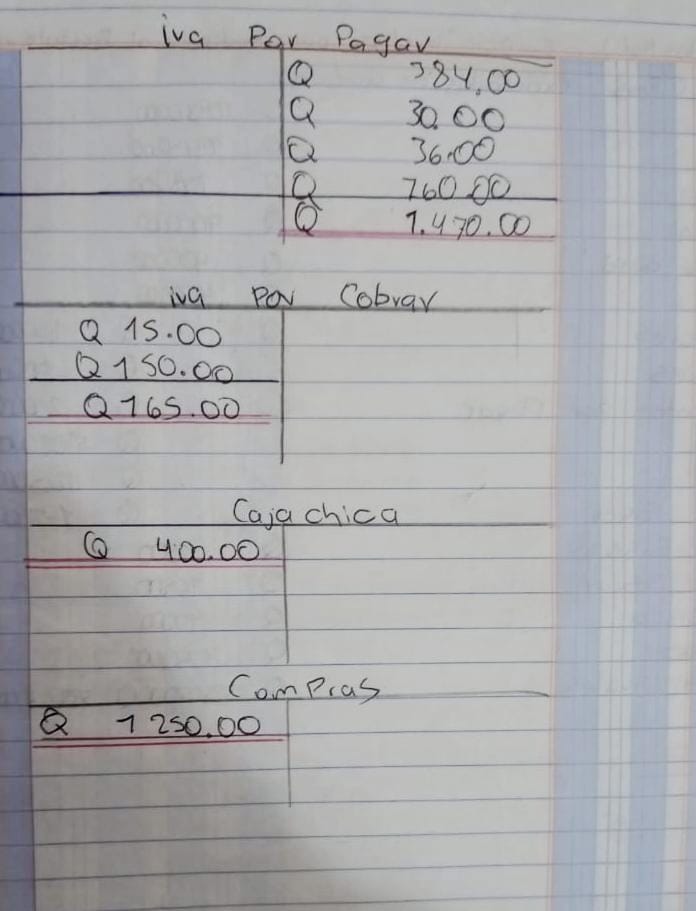 iva Por Pagar
Q 384.00
Q 30.00
Q 36.00
Q 760.00
Q 1.470.00
iva Por Cobrar
Q 15.00
Q 150.00
Q 165.00
Caja chica
Q 400.00
Compras
Q 1 250.00